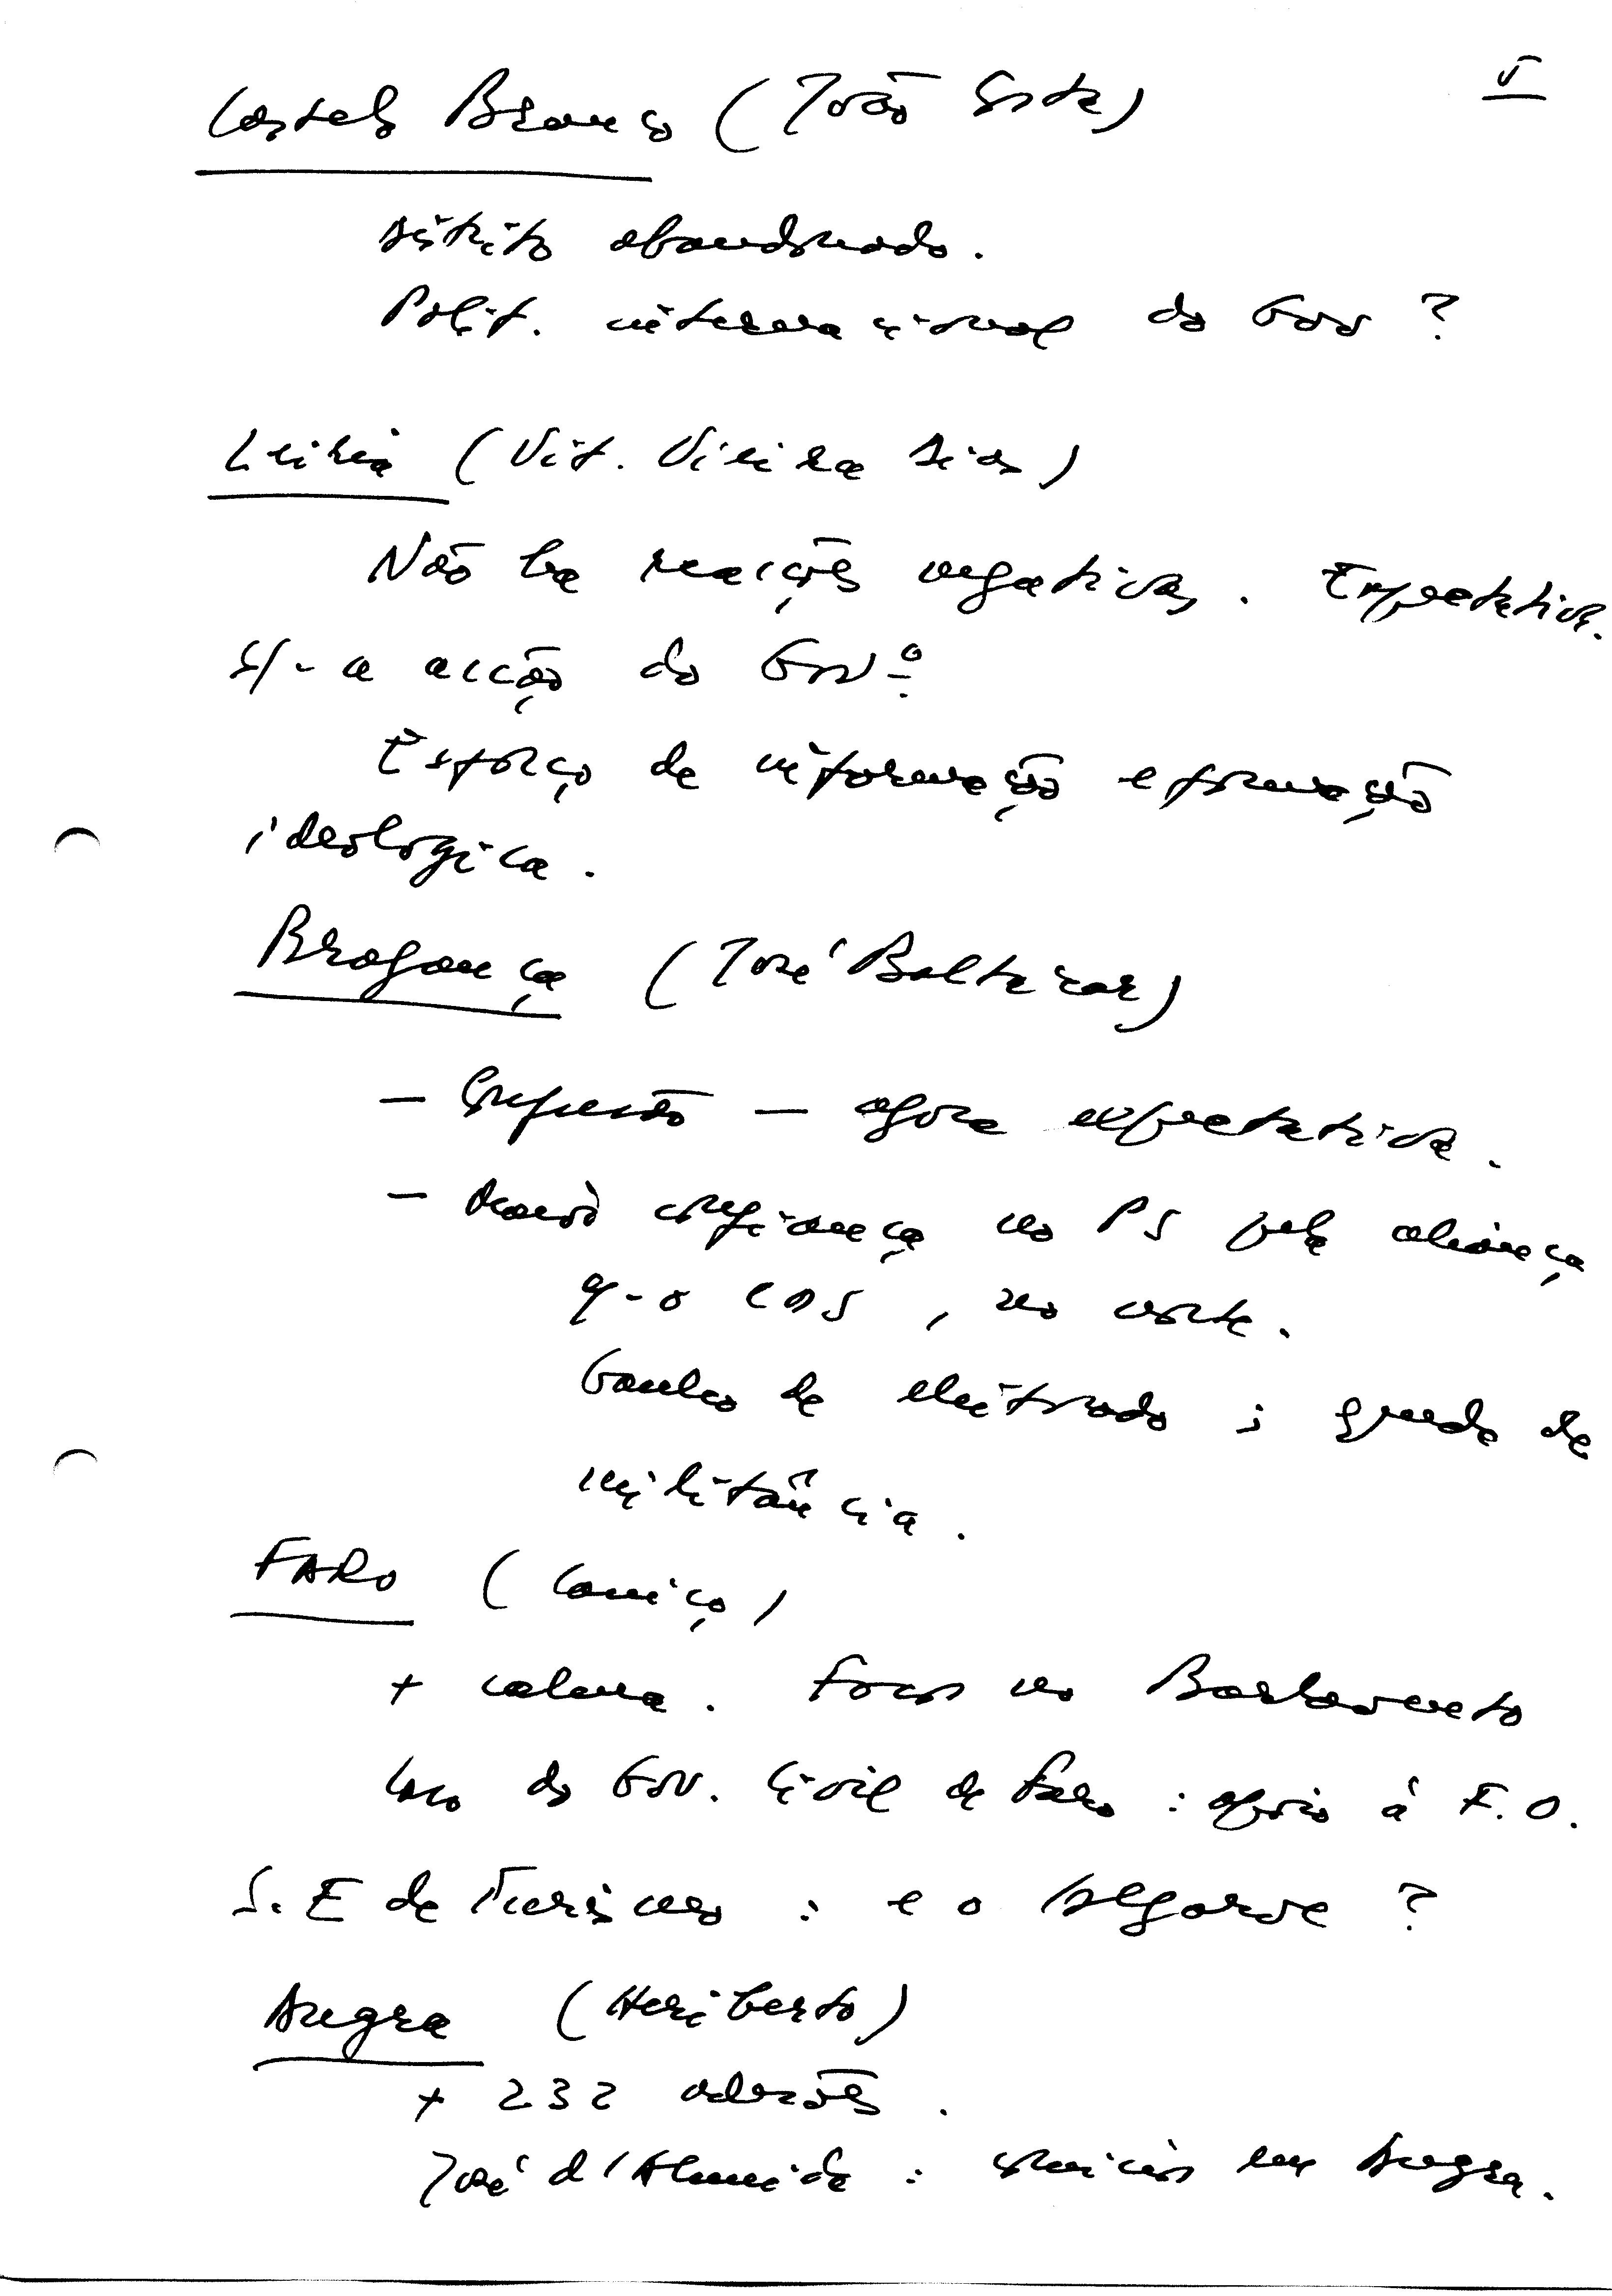 V
Castelo Branco (João
distrito abandonado.
Polit. internacional do Gov ?
Leiria (Vit. Vieira Dias)
Não há reacções negativas. Expectativa
s/- a acção do Govº.
Esforço de informação e formação
ideologica.
Bragança (José Baltazar)
- Confusão - agora expectativa.
- maior confiança no PS pela aliança
q-o CDS, no norte.
Ganho de eleitorado ; queda de
militância.
FARO (Caniço)
+ calma. Focos no Barlavento
do Gov. Civil de Faro : apoio à F.O.
S. E de Turismo : e o Algarve ?
Angra (Heriberto)
+ 232 adesões.
José d'Almeida : comicios em Angra.